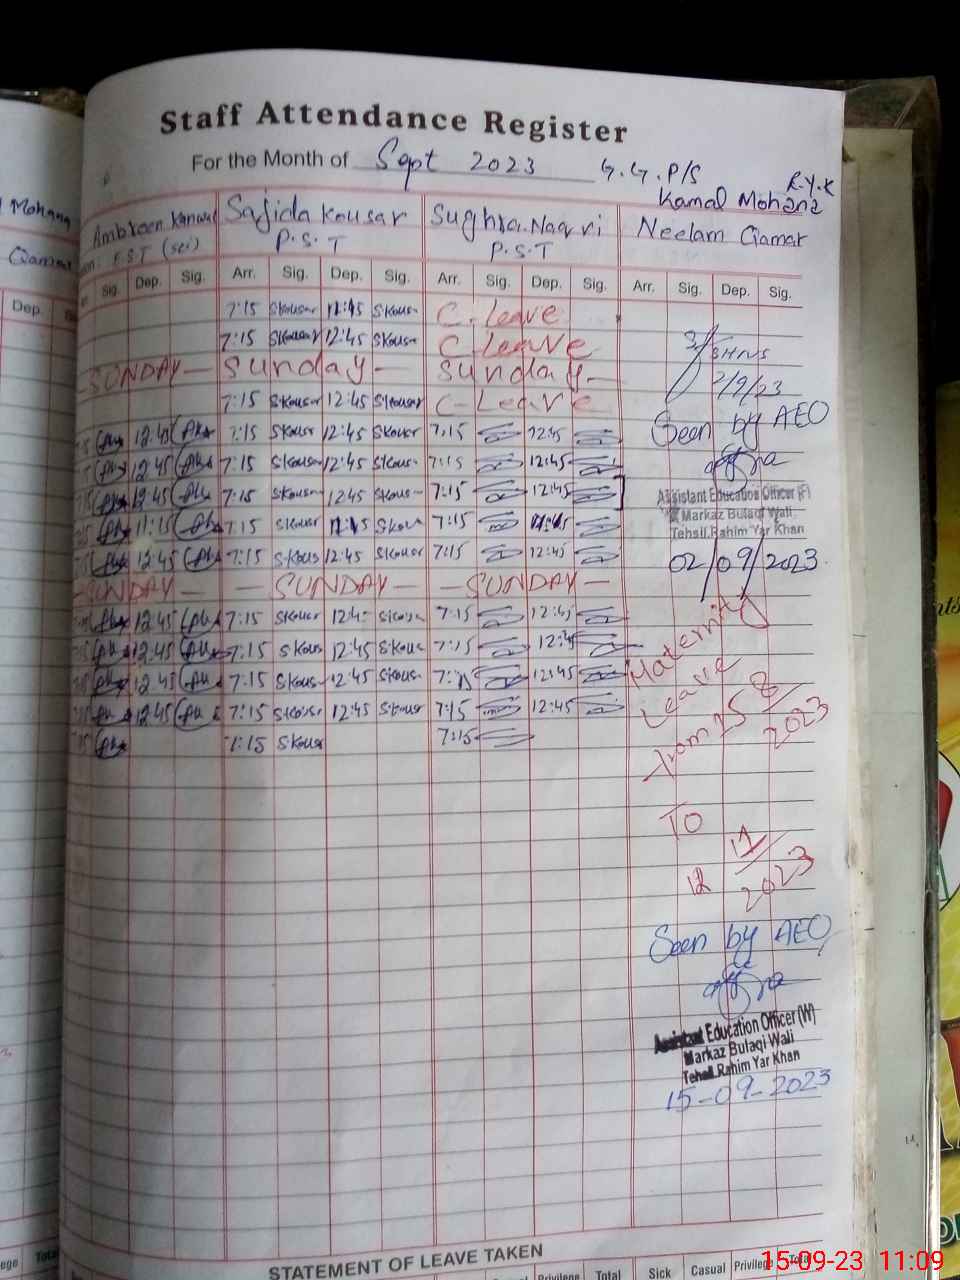 Staff Attendance Register
For the Month of Sept 2023 G.G.P/S R.Y.K
Kamal Mohana
Mohana
Qamar
Ambreen Kanwal Sajida Kousar Sughra Naqvi Neelam Qamar
E.S.T (sci) P.S.T P.S.T
Dep. Sig. Dep. Sig. Arr. Sig. Dep. Sig. Arr. Sig. Dep. Sig. Arr. Sig. Dep. Sig.
7:15 Skousar 12:45 Skousar C-leave
7:15 Skousar 12:45 Skousar C-leave
-SUNDAY- Sunday- Sunday-
7:15 Skousar 12:45 Skousar C-Leave
12:45 7:15 Skousar 12:45 Skousar 7:15 12:45
12:45 7:15 Skousar 12:45 Skousar 7:15 12:45
12:45 7:15 Skousar 12:45 Skousar 7:15 12:45
11:15 7:15 Skousar 11:15 Skousar 7:15 11:15
12:45 7:15 Skousar 12:45 Skousar 7:15 12:45
-SUNDAY- -SUNDAY- -SUNDAY-
12:45 7:15 Skousar 12:45 Skousar 7:15 12:45
12:45 7:15 Skousar 12:45 Skousar 7:15 12:45
12:45 7:15 Skousar 12:45 Skousar 7:15 12:45
12:45 7:15 Skousar 12:45 Skousar 7:15 12:45
7:15 Skousar 7:15
2/9/23
Seen by AEO
Assistant Education Officer (F)
Markaz Bulaqi Wali
Tehsil Rahim Yar Khan
02/09/2023
Maternity
Leave
from 15 8/2023
TO
12 11/2023
Seen by AEO
Assistant Education Officer (W)
Markaz Bulaqi Wali
Tehsil Rahim Yar Khan
15-09-2023
STATEMENT OF LEAVE TAKEN
Total Privilege Total Sick Casual Privilege Total
15-09-23 11:09